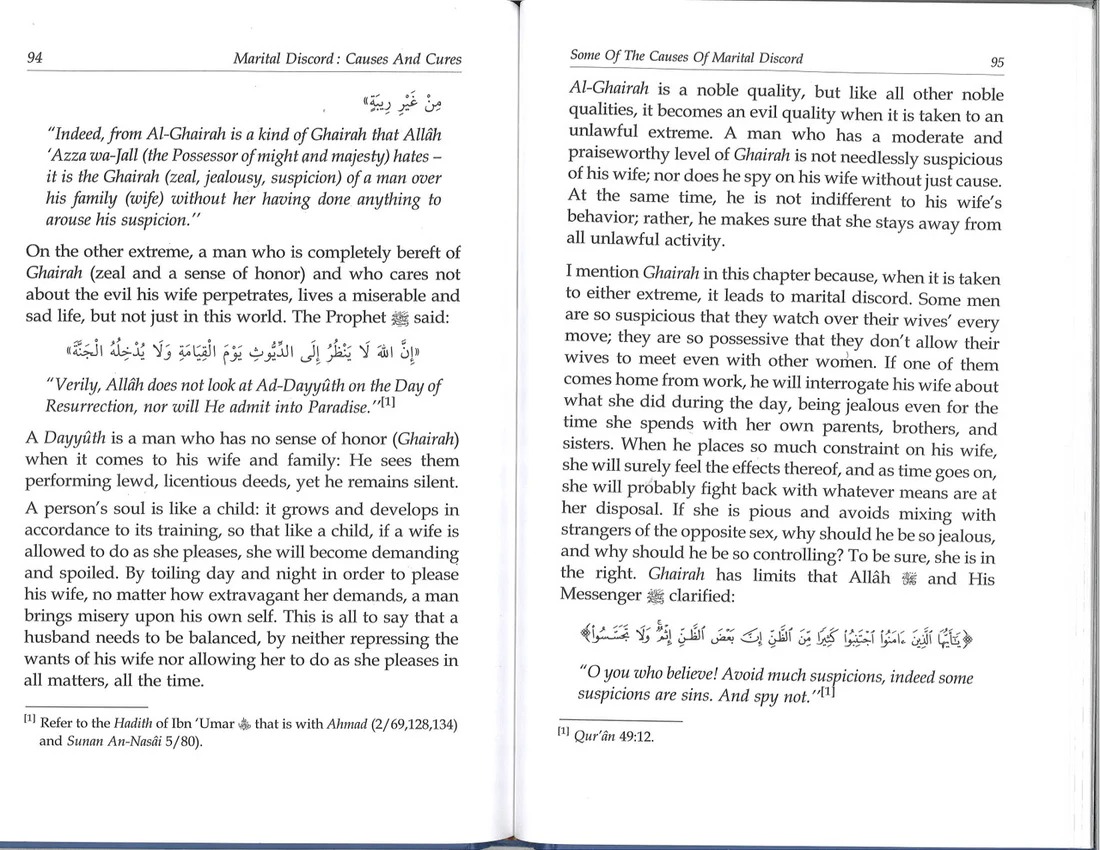 94 Marital Discord : Causes And Cures
مِنْ غَيْرِ رِيبَةٍ»
“Indeed, from Al-Ghairah is a kind of Ghairah that Allâh
‘Azza wa-Jall (the Possessor of might and majesty) hates –
it is the Ghairah (zeal, jealousy, suspicion) of a man over
his family (wife) without her having done anything to
arouse his suspicion.”
On the other extreme, a man who is completely bereft of
Ghairah (zeal and a sense of honor) and who cares not
about the evil his wife perpetrates, lives a miserable and
sad life, but not just in this world. The Prophet ﷺ said:
«إِنَّ اللهَ لَا يَنْظُرُ إِلَى الدَّيُّوثِ يَوْمَ الْقِيَامَةِ وَلَا يُدْخِلُهُ الْجَنَّةَ»
“Verily, Allâh does not look at Ad-Dayyûth on the Day of
Resurrection, nor will He admit into Paradise.”[1]
A Dayyûth is a man who has no sense of honor (Ghairah)
when it comes to his wife and family: He sees them
performing lewd, licentious deeds, yet he remains silent.
A person’s soul is like a child: it grows and develops in
accordance to its training, so that like a child, if a wife is
allowed to do as she pleases, she will become demanding
and spoiled. By toiling day and night in order to please
his wife, no matter how extravagant her demands, a man
brings misery upon his own self. This is all to say that a
husband needs to be balanced, by neither repressing the
wants of his wife nor allowing her to do as she pleases in
all matters, all the time.
[1] Refer to the Hadith of Ibn ‘Umar that is with Ahmad (2/69,128,134)
and Sunan An-Nasâi 5/80).
Some Of The Causes Of Marital Discord 95
Al-Ghairah is a noble quality, but like all other noble
qualities, it becomes an evil quality when it is taken to an
unlawful extreme. A man who has a moderate and
praiseworthy level of Ghairah is not needlessly suspicious
of his wife; nor does he spy on his wife without just cause.
At the same time, he is not indifferent to his wife’s
behavior; rather, he makes sure that she stays away from
all unlawful activity.
I mention Ghairah in this chapter because, when it is taken
to either extreme, it leads to marital discord. Some men
are so suspicious that they watch over their wives’ every
move; they are so possessive that they don’t allow their
wives to meet even with other women. If one of them
comes home from work, he will interrogate his wife about
what she did during the day, being jealous even for the
time she spends with her own parents, brothers, and
sisters. When he places so much constraint on his wife,
she will surely feel the effects thereof, and as time goes on,
she will probably fight back with whatever means are at
her disposal. If she is pious and avoids mixing with
strangers of the opposite sex, why should he be so jealous,
and why should he be so controlling? To be sure, she is in
the right. Ghairah has limits that Allâh and His
Messenger ﷺ clarified:
﴿يَٰٓأَيُّهَا ٱلَّذِينَ ءَامَنُوا۟ ٱجْتَنِبُوا۟ كَثِيرًا مِّنَ ٱلظَّنِّ إِنَّ بَعْضَ ٱلظَّنِّ إِثْمٌ ۖ وَلَا تَجَسَّسُوا۟﴾
“O you who believe! Avoid much suspicions, indeed some
suspicions are sins. And spy not.”[1]
[1] Qur’ân 49:12.